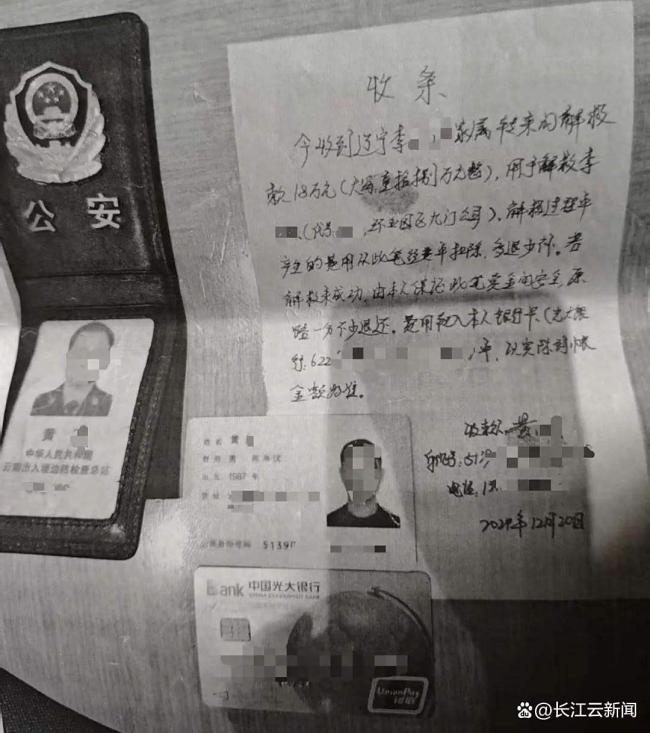 公安
黄
中华人民共和国
云南出入境边防检查总站
收条
今收到辽宁李 家属转来的解救
款18万元(大写 万元整),用于解救李
(代号 )。解救过程中
产生的费用从此笔 中扣除,多退少补。若
解救未成功,由本人保证此笔资金的安全,原
路一分不少退还。费用 入本人银行卡(光大银
行:622 )中,以实际到帐
金额为准。
收款人:黄
身份证号:51
电话:1
2024年12月20日
姓名 黄
性别 男 民族 汉
出生 1987 年
住址
公民身份号码 5139
Bank 中国光大银行
CHINA EVERBRIGHT BANK
UnionPay
银联
长江云新闻